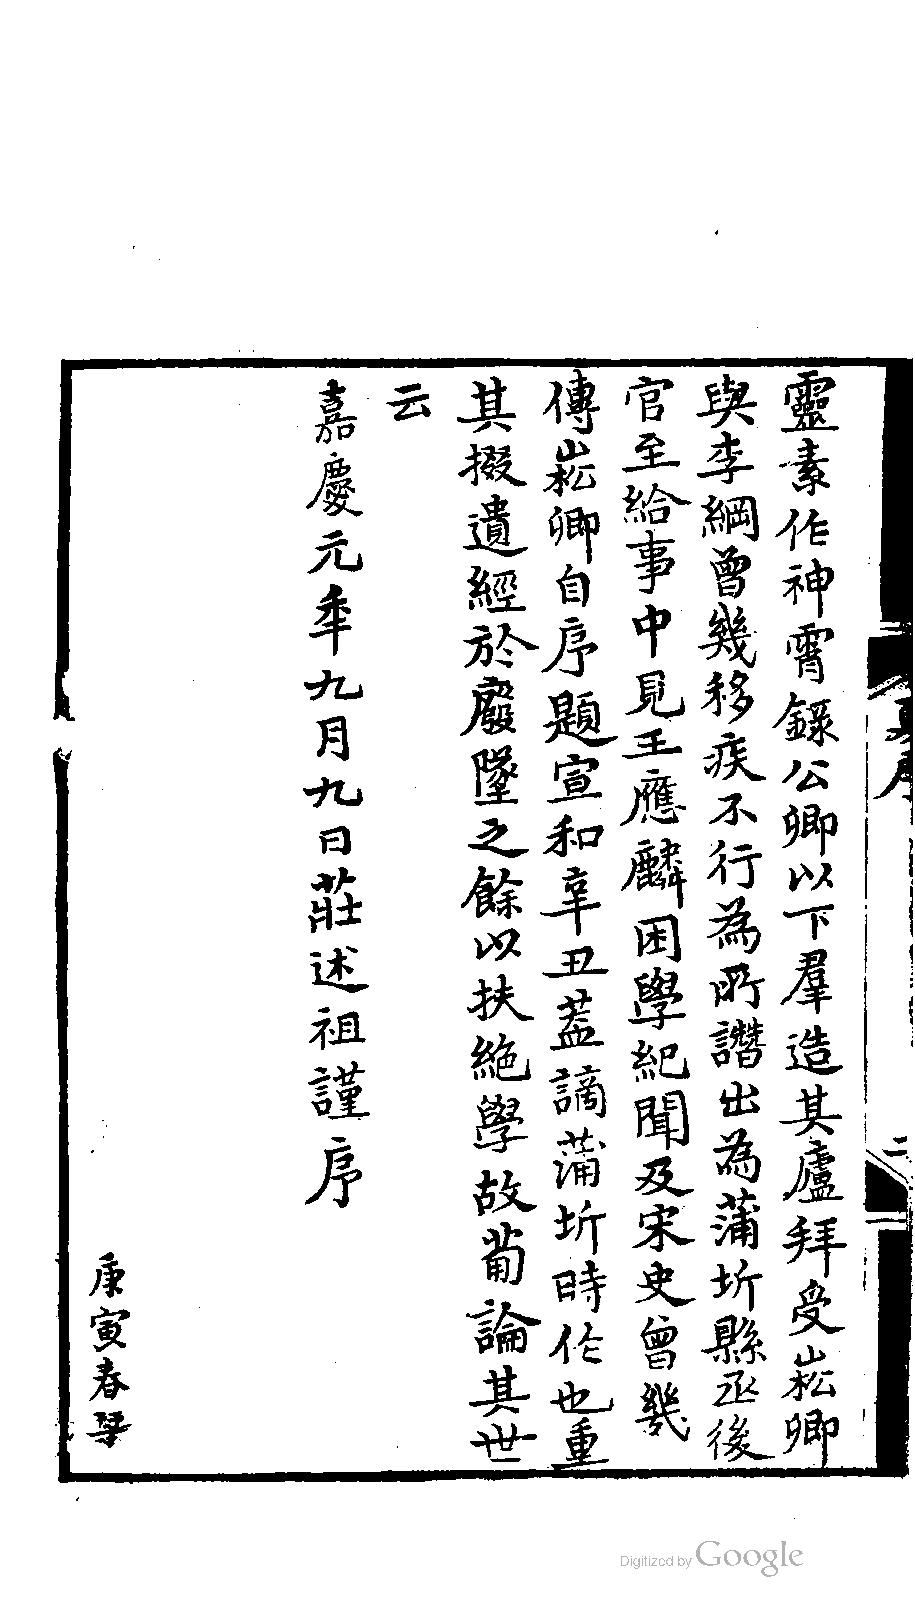 靈素作神霄錄公卿以下羣造其廬拜受崧卿
與李綱曾幾移疾不行為所譖出為蒲圻縣丞後
官至給事中見王應麟困學紀聞及宋史曾幾
傳崧卿自序題宣和辛丑蓋謫蒲圻時作也重
其掇遺經於廢墜之餘以扶絶學故葡論其世
云
嘉慶元年九月九日莊述祖謹序
庚寅春琹
二
Digitized by Google